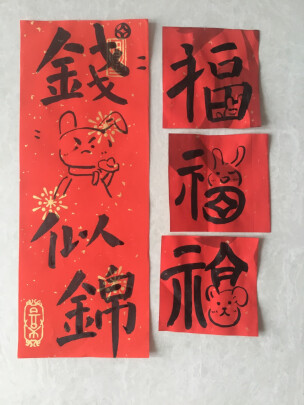 錢
似
錦
福
福
福